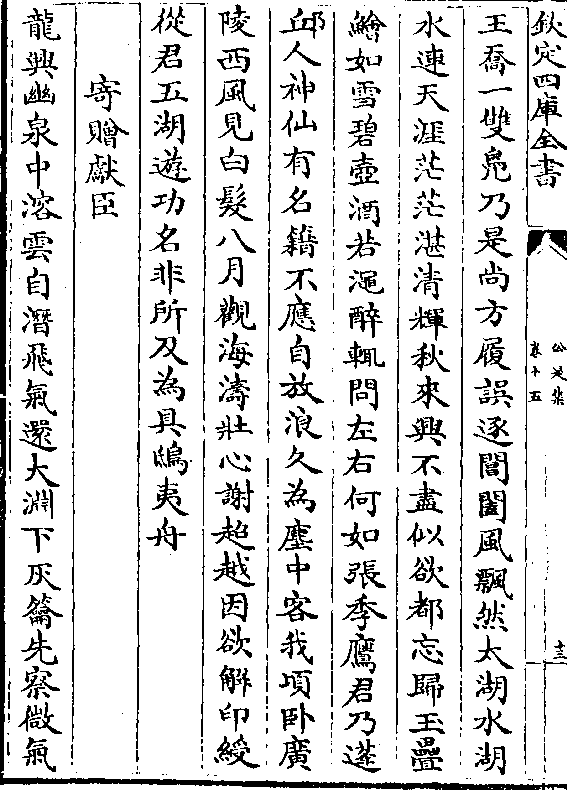 欽定四庫全書
公是集
卷十五
十三
王喬一雙鳬乃是尚方履誤逐閶闔風飄然太湖水湖
水連天涯茫茫湛清輝秋來興不盡似欲都忘歸玉疊
鱠如雪碧壺酒若澠醉輒問左右何如張季鷹君乃蓬
邱人神仙有名籍不應自放浪久為塵中客我項卧廣
陵西風見白髮八月觀海濤壯心謝超越因欲解印綬
從君五湖遊功名非所及為具鴟夷舟
寄贈獻臣
龍興幽泉中溶雲自潛飛氣還大淵下灰籥先察微氣